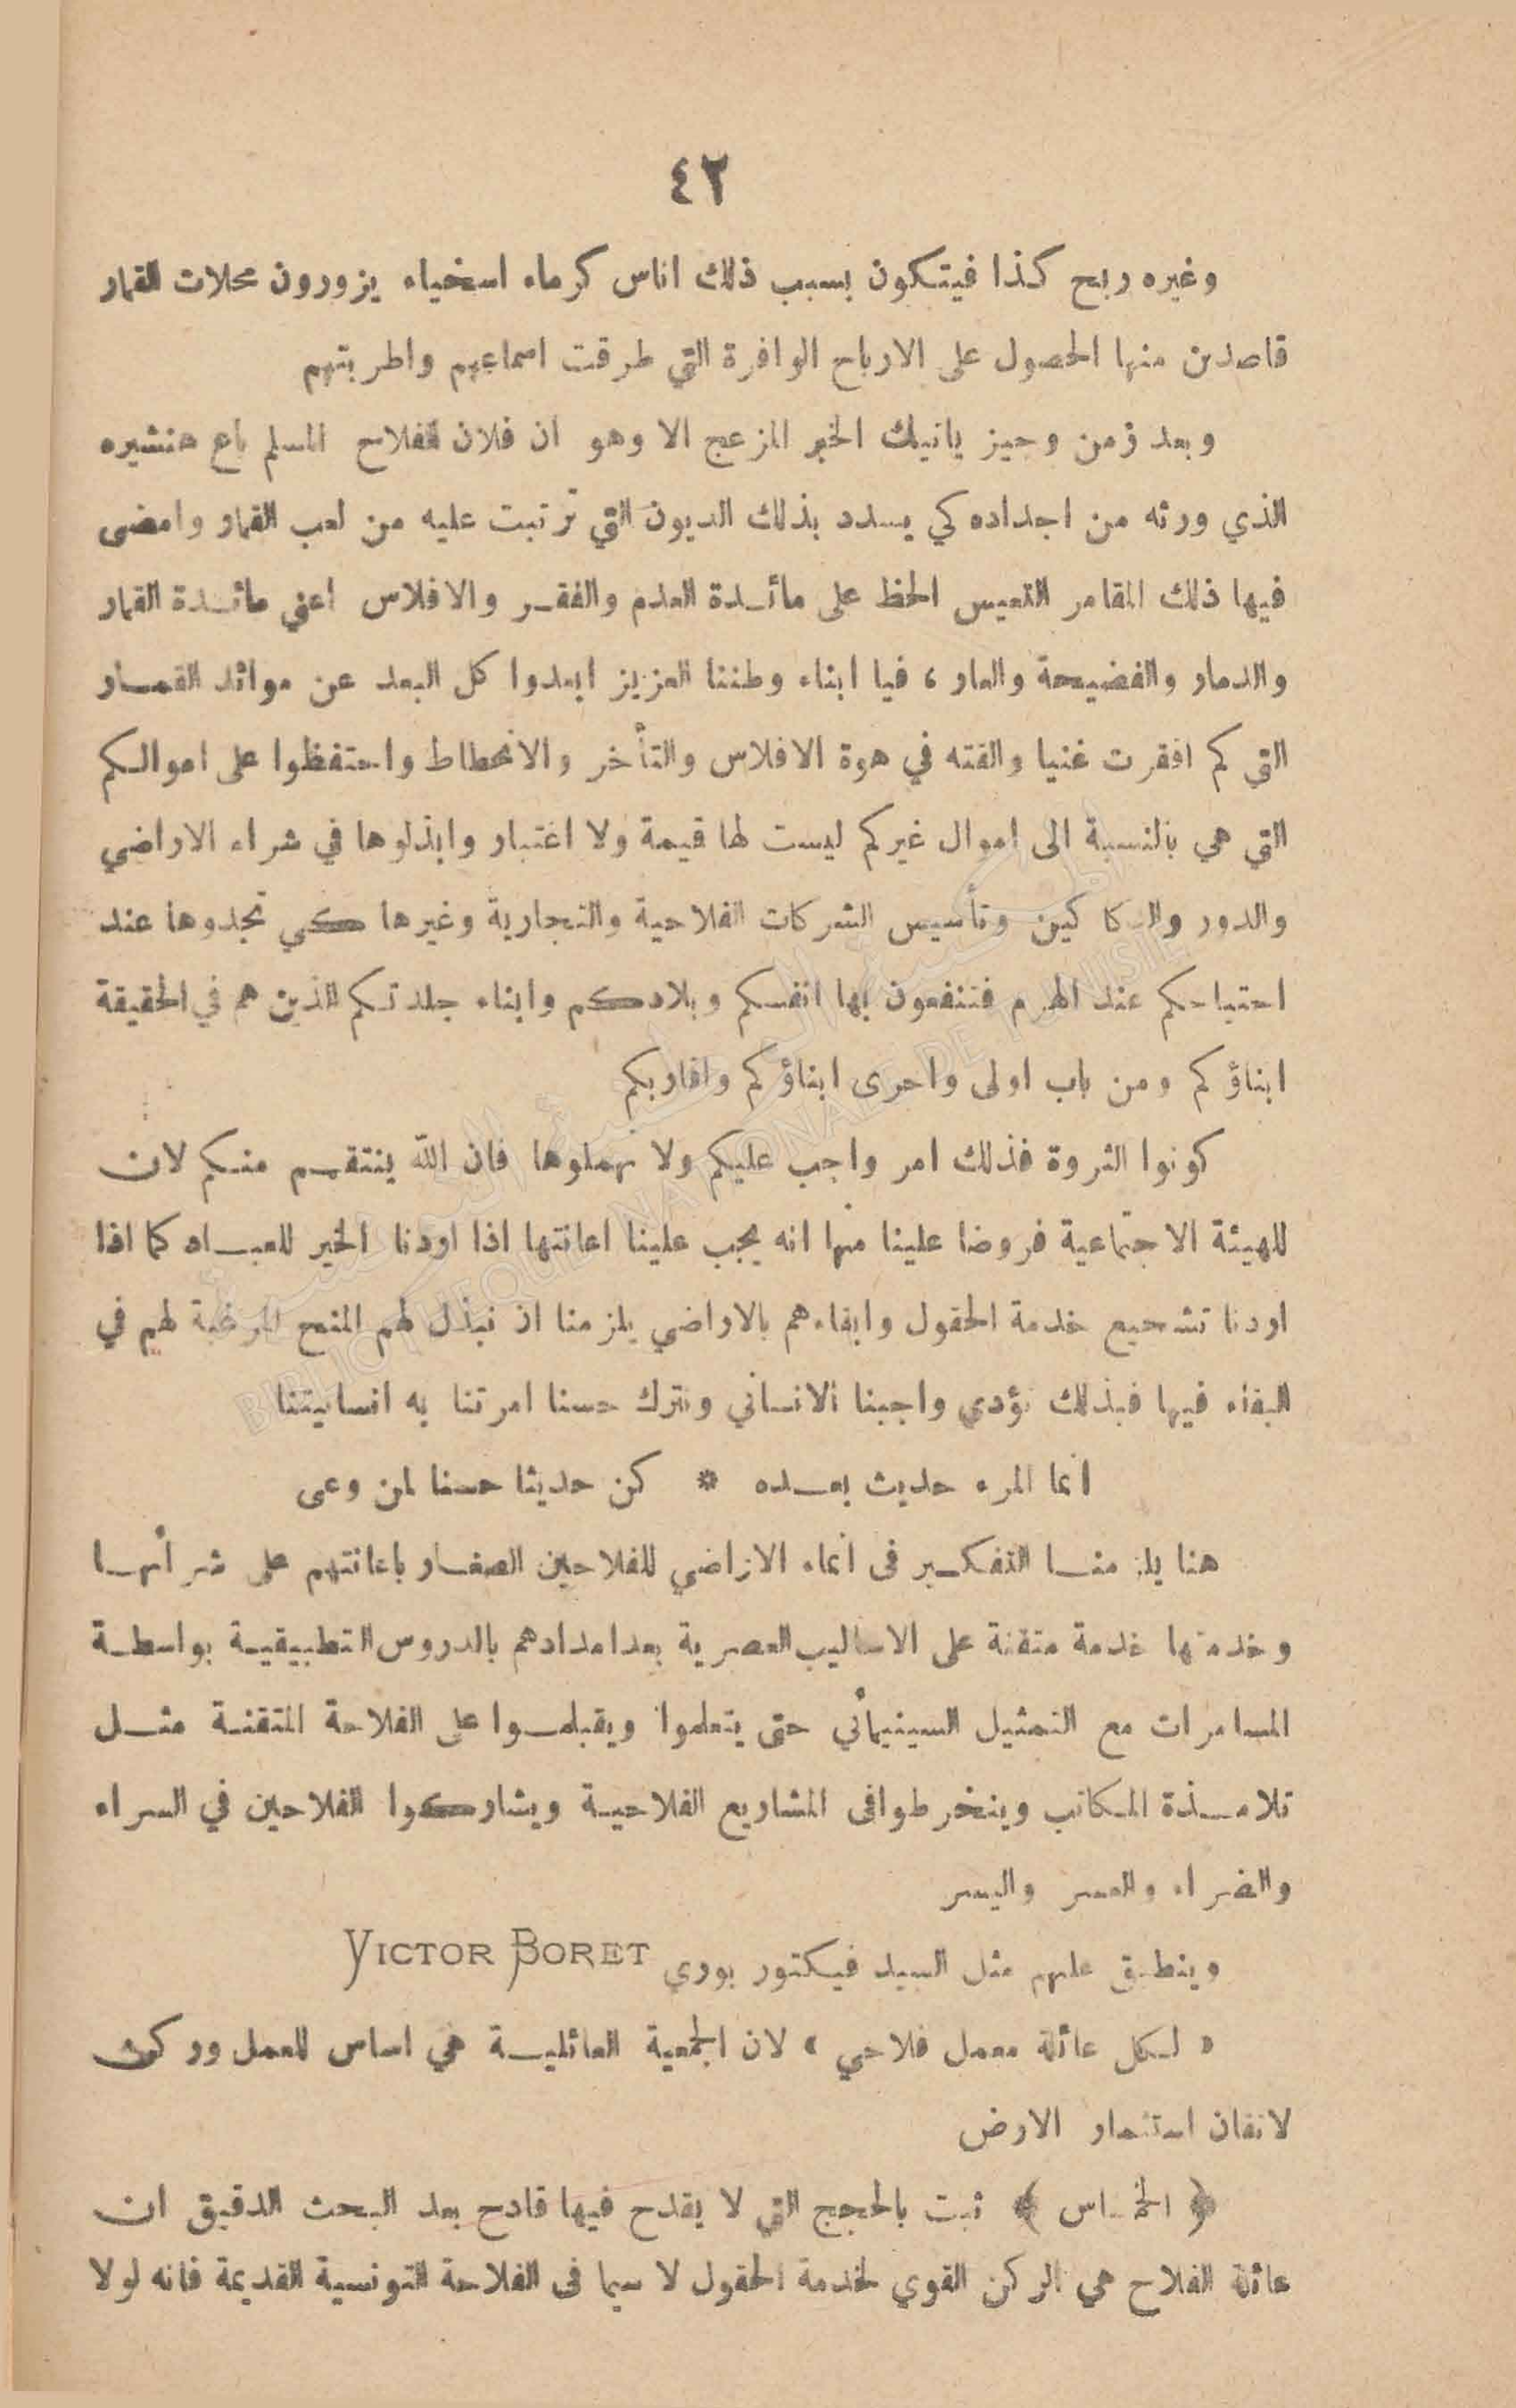 ٤٢
وغيره ربح كذا فيتكون بسبب ذلك اناس كرماء اسخياء يزورون محلات القمار
قاصدين منها الحصول على الارباح الوافرة التي طرقت اسماعهم واطربتهم
وبعد زمن وجيز ياتيك الخبر المزعج الا وهو ان فلان الفلاح المسلم باع هنشيره
الذي ورثه من اجداده كي يسدد بذلك الديون التي ترتبت عليه من لعب القمار وامضى
فيها ذلك المقامر التعيس الحظ على مائدة العدم والفقر والافلاس اعني مائدة القمار
والدمار والفضيحة والعار ، فيا ابناء وطننا العزيز ابعدوا كل البعد عن موائد القمار
التي كم افقرت غنيا والقته في هوة الافلاس والتأخر والانحطاط واحتفظوا على اموالكم
التي هي بالنسبة الى اموال غيركم ليست لها قيمة ولا اعتبار وابذلوها في شراء الاراضي
والدور والدكاكين وتأسيس الشركات الفلاحية والتجارية وغيرها كي تجدوها عند
احتياجكم عند الهرم فتنفعون بها انفسكم وبلادكم وابناء جلدتكم الذين هم في الحقيقة
ابناؤكم ومن باب اولى واحرى ابناؤكم واقاربكم
كونوا الثروة فذلك امر واجب عليكم ولا تهملوها فان الله ينتقم منكم لان
للهيئة الاجتماعية فروضا علينا منها انه يجب علينا اعانتها اذا اردنا الخير للعباد كما اذا
اردنا تشجيع خدمة الحقول وابقاءهم بالاراضي يلزمنا ان نبذل لهم المنح المرغبة لهم في
البقاء فيها فبذلك نؤدي واجبنا الانساني ونترك حسنا امرتنا به انسانيتنا
انما المرء حديث بعده * كن حديثا حسنا لمن وعى
هنا يلزمنا التفكير فى انماء الاراضي للفلاحين الصغار باعانتهم على شرائها
وخدمتها خدمة متقنة على الاساليب العصرية بعد امدادهم بالدروس التطبيقية بواسطة
المسامرات مع التمثيل السينيمائي حتى يتعلموا ويقبلوا على الفلاحة المتقنة مثل
تلامذة المكاتب وينخرطوا فى المشاريع الفلاحية ويشاركوا الفلاحين في السراء
والضراء والعسر واليسر
وينطبق عليهم مثل السيد فيكتور بوري VICTOR BORET
« لكل عائلة معمل فلاحي » لان الجمعية العائلية هي اساس للعمل وركن
لاتقان استثمار الارض
﴿ الخماس ﴾ ثبت بالحجج التي لا يقدح فيها قادح بعد البحث الدقيق ان
عائلة الفلاح هي الركن القوي لخدمة الحقول لا سيما فى الفلاحة التونسية القديمة فانه لولا
BIBLIOTHEQUE NATIONALE DE TUNISIE